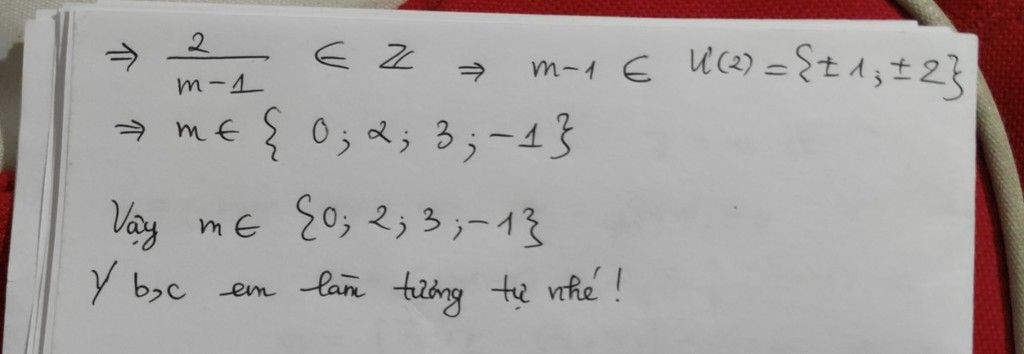 ⇒ 2/(m-1) ∈ ℤ ⇒ m-1 ∈ Ư(2) = {±1; ±2}
⇒ m ∈ { 0; 2; 3; -1}
Vậy m ∈ {0; 2; 3; -1}
Ý b,c em làm tương tự nhé!